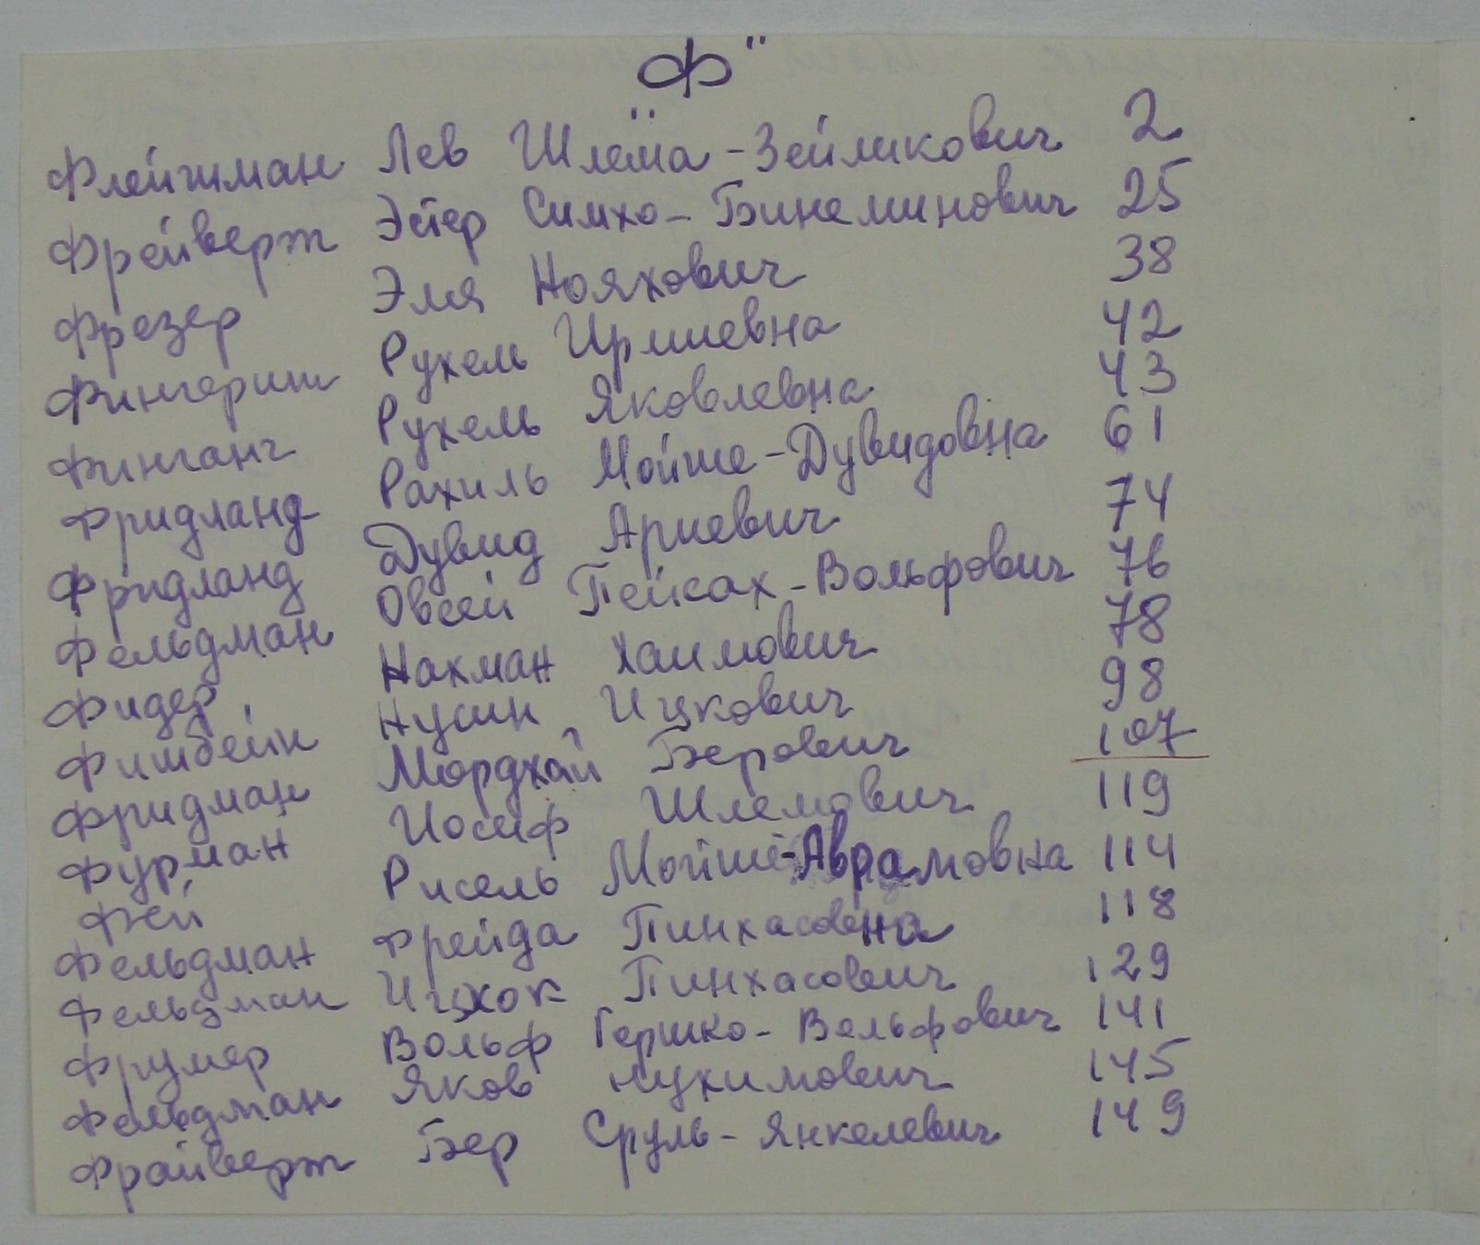 Ф"
Флейшман Лев Шлёма-Зейликович 2
Фрейверт Эстер Симхо-Бинеминович 25
Фрезер Эля Нояхович 38
Фингерит Рухель Иршевна 42
Финганг Рухель Яковлевна 43
Фридланд Рахиль Мойше-Дувидовна 61
Фридланд Дувид Ариевич 74
Фельдман Овсей Пейсах-Вольфович 76
Фидер Нахман Хаимович 78
Фишбейн Нусин Ицкович 98
Фридман Мордхай Берович 107
Фурман Иосиф Шлемович 119
Фей Рисель Мойше-Аврамовна 114
Фельдман Фрейда Пинхасовна 118
Фельдман Ицхок Пинхасович 129
Фрумер Вольф Гершко-Вольфович 141
Фельдман Яков Нухимович 145
Фрайверт Бер Сруль-Янкелевич 149